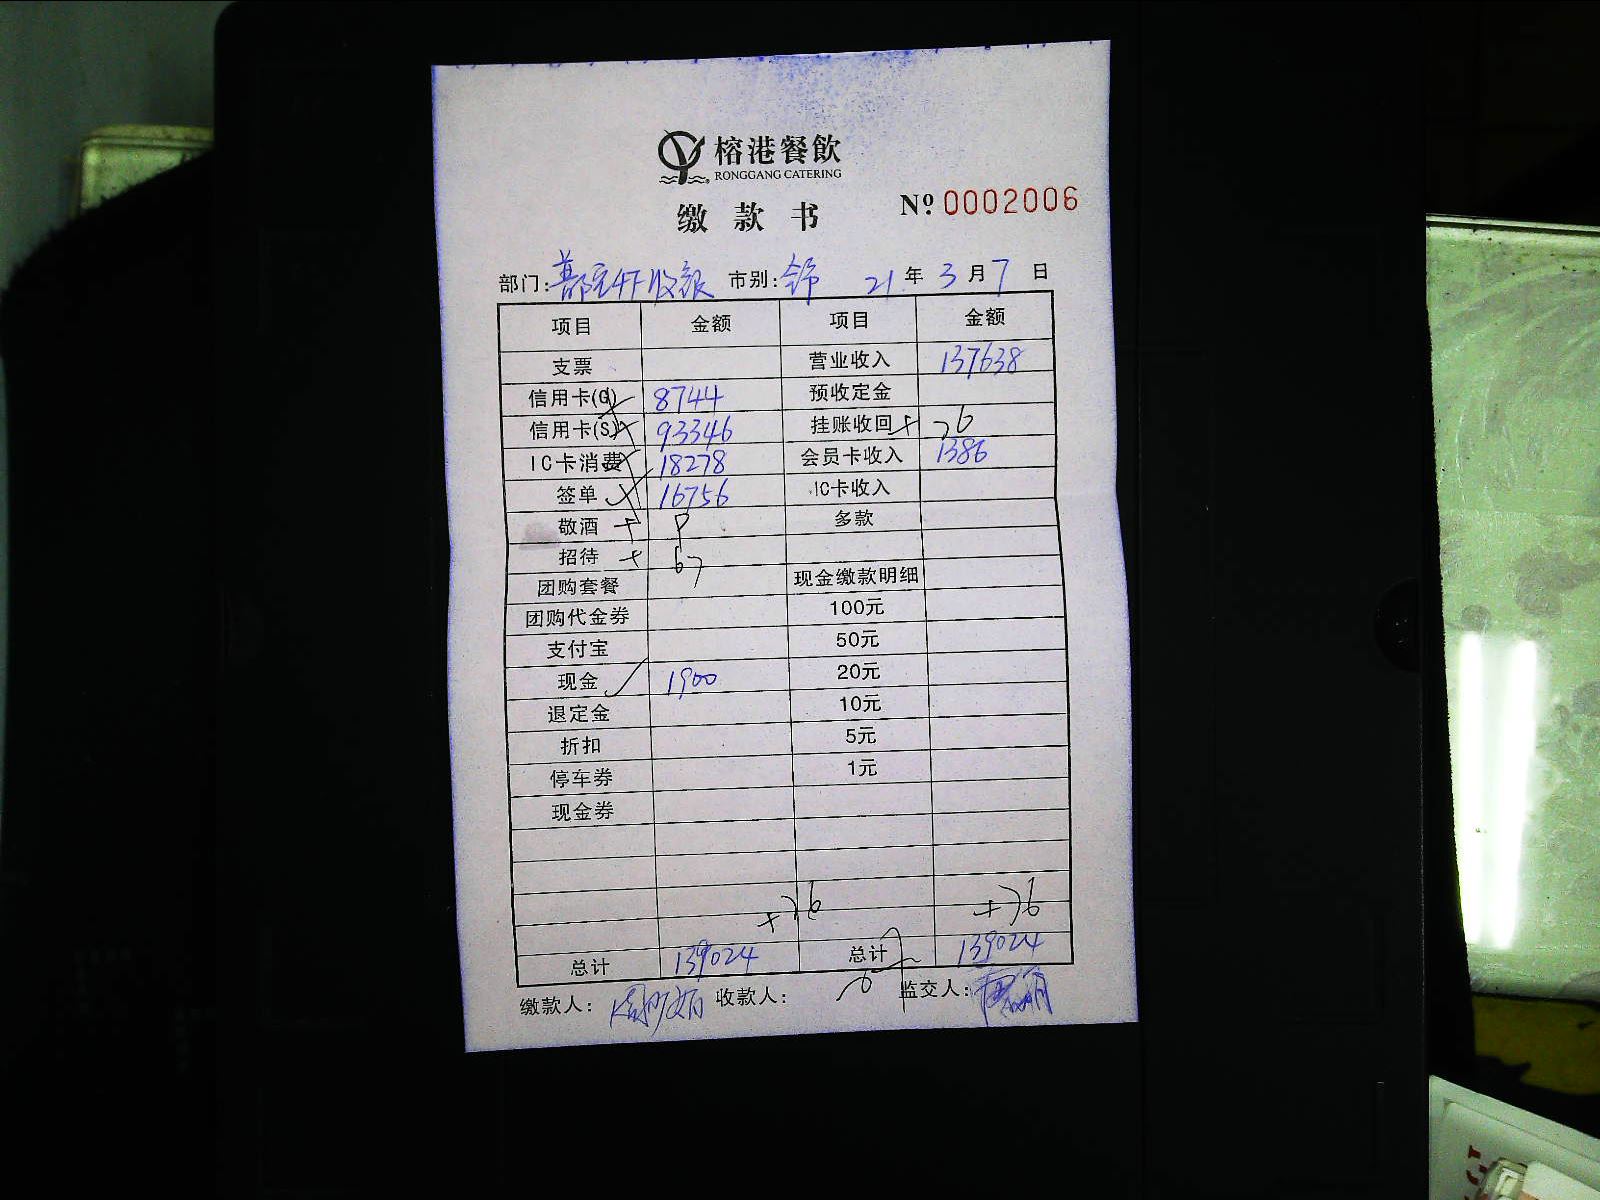 榕港餐飲
RONGGANG CATERING
缴款书 Nº 0002006
部门: 市别: 21年3月7日
项目 金额 项目 金额
支票 营业收入 137638
信用卡(G) 8744 预收定金
信用卡(S) 93346 挂账收回 + 76
IC卡消费 18278 会员卡收入 1386
签单 16756 IC卡收入
敬酒 + 9 多款
招待 + 67
团购套餐 现金缴款明细
团购代金券 100元
支付宝 50元
现金 1900 20元
退定金 10元
折扣 5元
停车券 1元
现金券
+76 +76
总计 139024 总计 139024
缴款人: 收款人: 监交人: